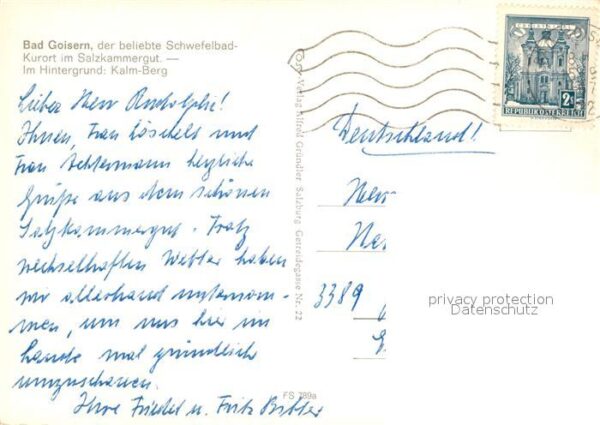 Bad Goisern, der beliebte Schwefelbad-
Kurort im Salzkammergut. —
Im Hintergrund: Kalm-Berg
Lieber Herr Rudolphi!
Ihnen, Frau Löschels und
Frau Achtermann herzliche
Grüße aus dem schönen
Salzkammergut. Trotz
wechselhaften Wetter haben
wir allerhand unternom-
men, um uns hier im
Lande mal gründlich
umzuschauen.
Ihre Friedel u. Fritz
FS 789a
Verlag Alfred Gründler Salzburg Getreidegasse Nr. 22
REPUBLIK ÖSTERREICH
2S
Deutschland!
Herr
3389
privacy protection
Datenschutz